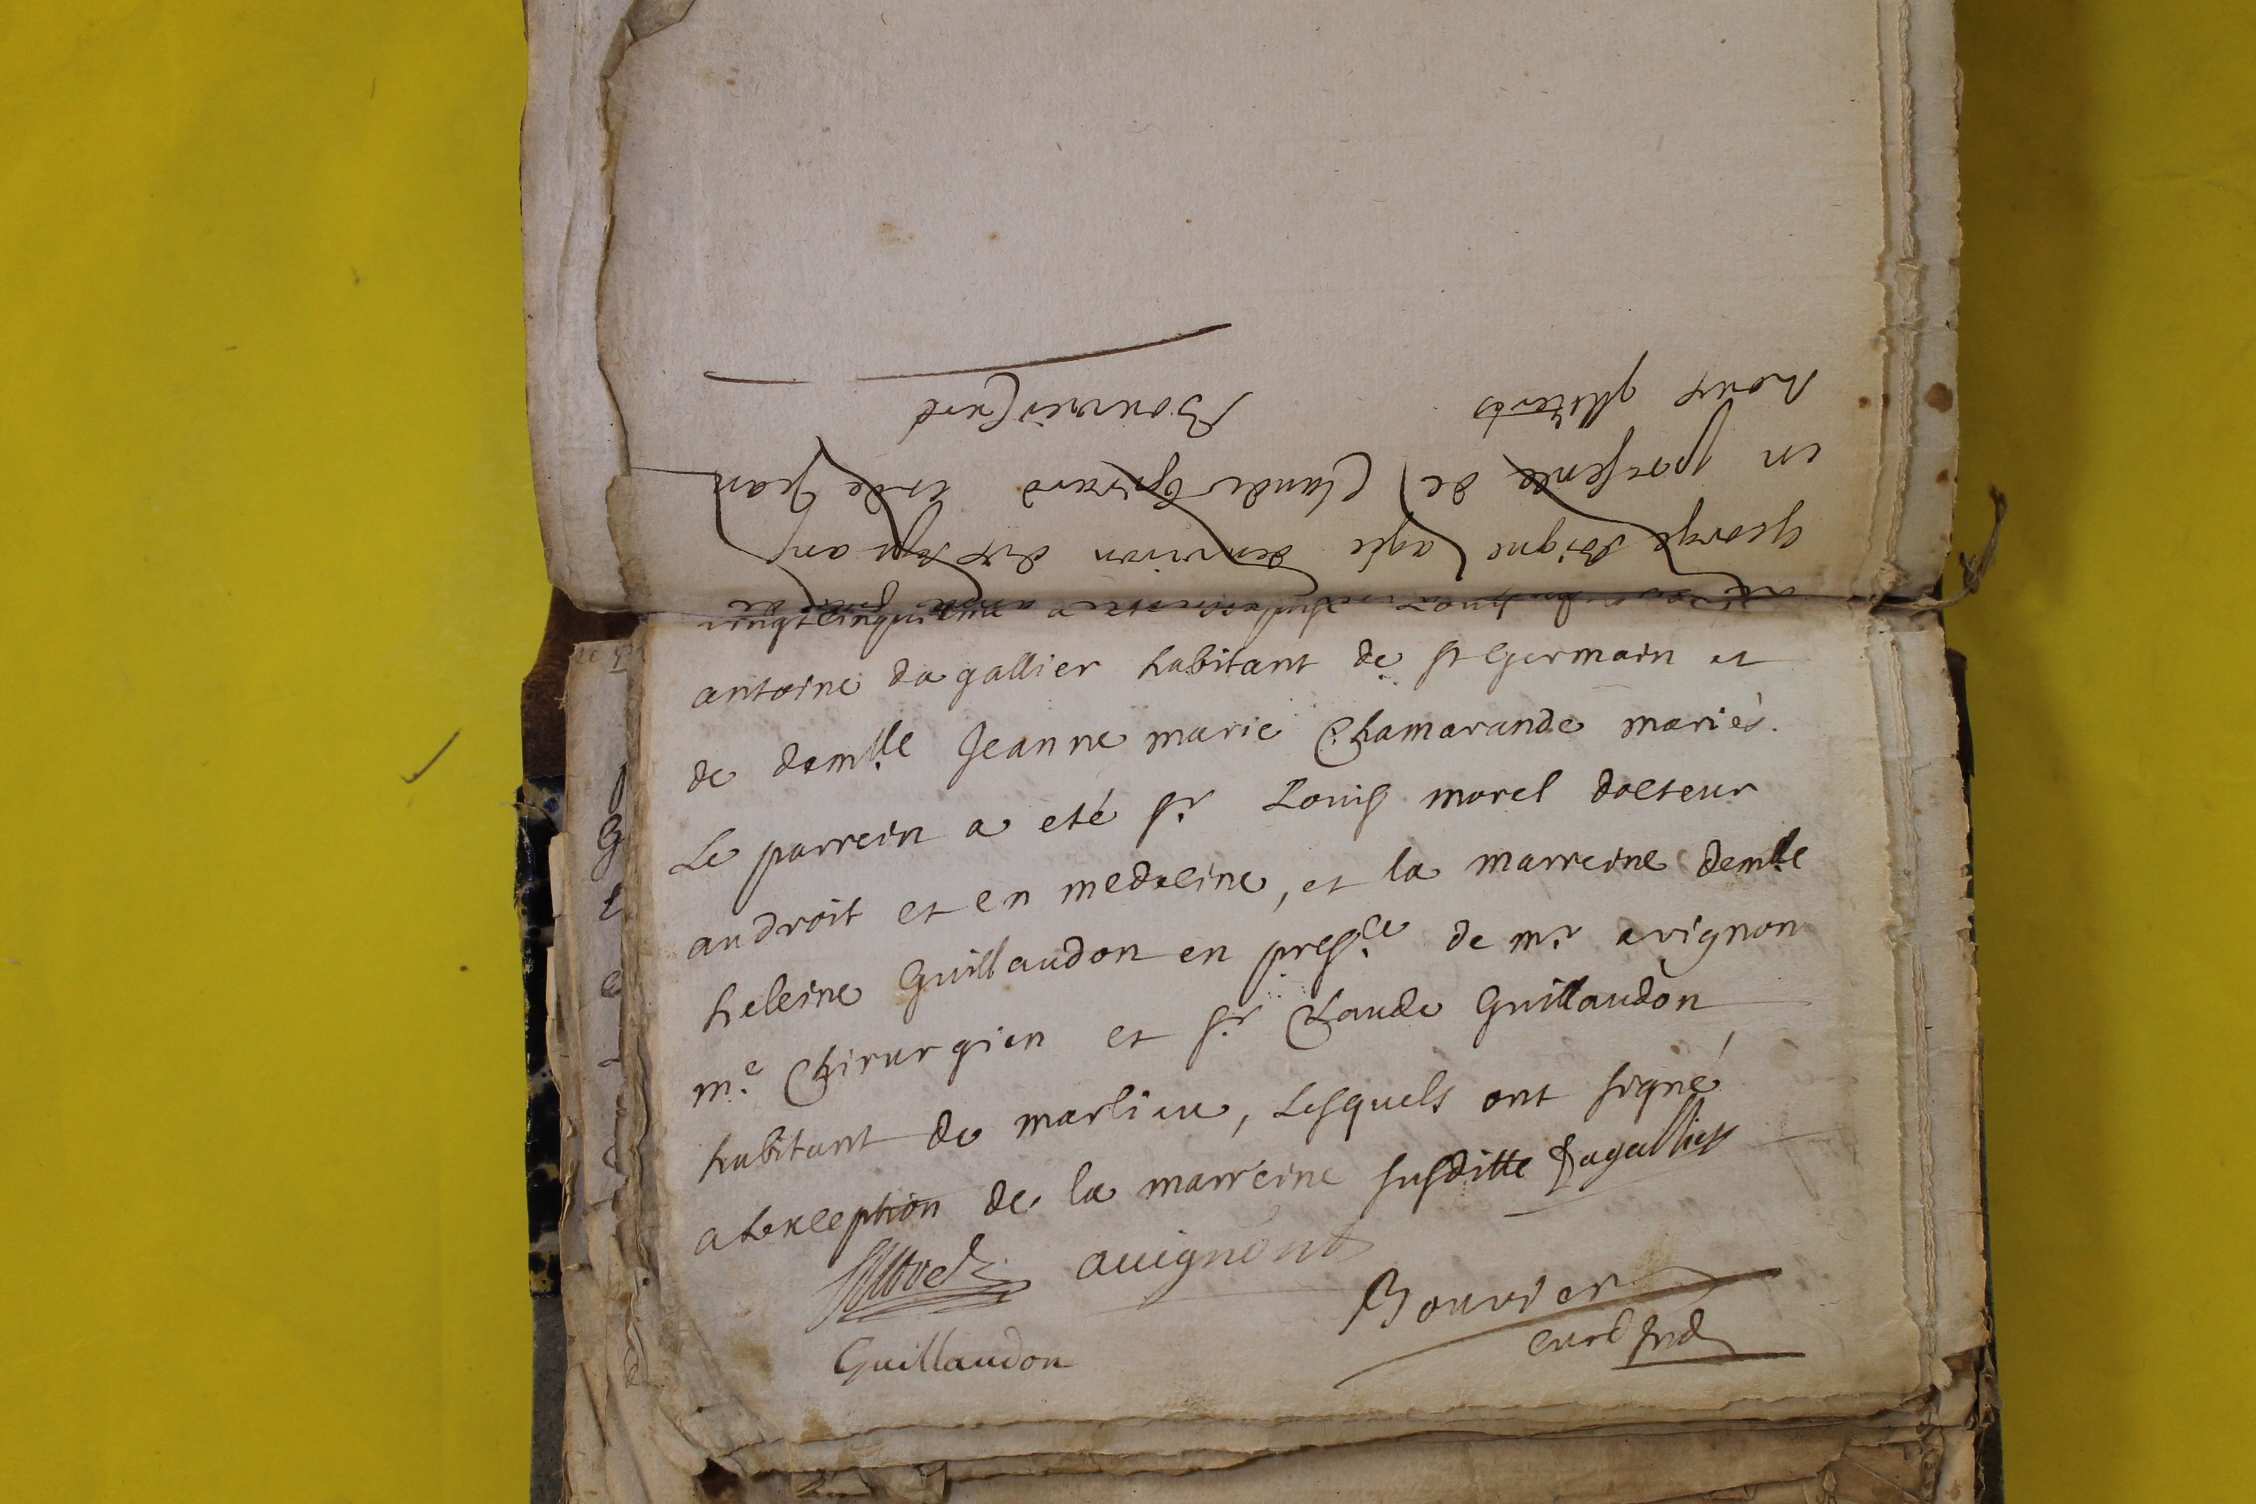 antoine dagallier habitant de st Germain et
de demlle Jeanne marie Chamarande mariés.
Le parrein a eté sr. Louis morel docteur
audroit et en medecine, et la marreine demlle
heleine Guillaudon en presce. de mr. avignon
me. Chirurgien et sr. Claude Guillaudon
habitant de marlieu, Lesquels ont signé
a Lexception de la marreine susditte Dagallier
Morel avignont
Bouvier
Guillaudon
curé
vingtcinquieme
george agé denviron dix sept ans
en presence de Claude et de Jean
Bouvier Curé